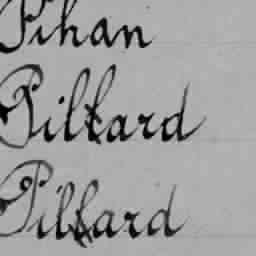 Pihan
Pillard
Pillard